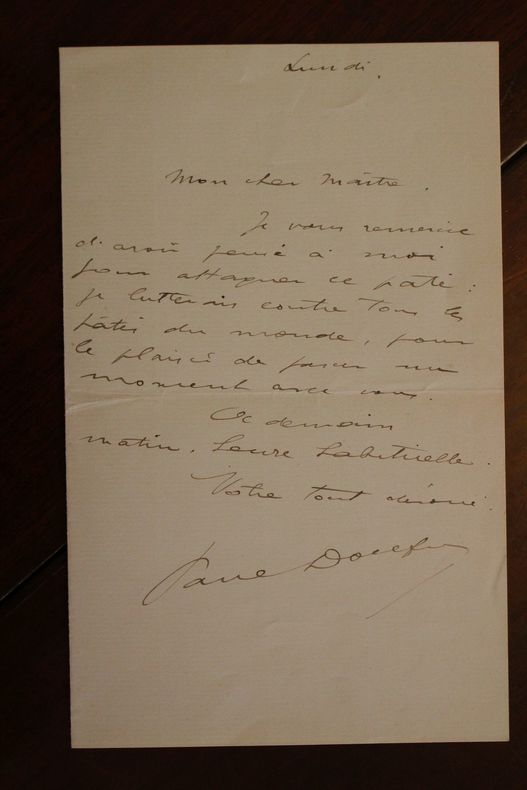 Lundi.
Mon cher Maître.
Je vous remercie
d'avoir pensé à moi
pour attaquer ce pâté :
je lutterais contre tous les
pâtés du monde, pour
le plaisir de passer un
moment avec vous.
A demain
matin, l'heure habituelle.
Votre tout dévoué.